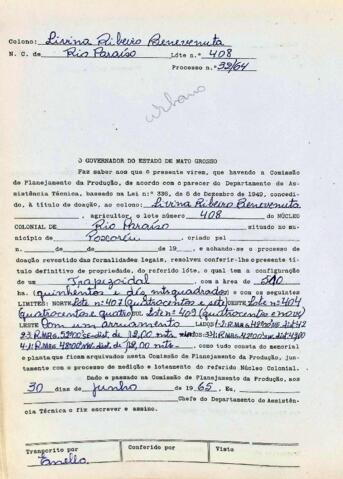 Colono: Livina Ribeiro Benevenuta
N. C. de Rio Paraíso Lóte n.º 408
Processo n.º 32/64
Urbano
O GOVERNADOR DO ESTADO DE MATO GROSSO
Faz saber aos que o presente virem, que havendo a Comissão
de Planejamento da Produção, de acordo com o parecer do Departamento de As-
sistência Técnica, baseado na Lei n.º 336, de 6 de Dezembro de 1949, concedi-
do, à título de doação, ao colono: Livina Ribeiro Benevenuta
, agricultor, o lote número 408 do NÚCLEO
COLONIAL DE Rio Paraíso situado no mu-
nicípio de Poxoréu, criado pel
n. de de de 19 , e achando-se o processo de
doação revestido das formalidades legais, resolveu conferir-lhe o presente
título definitivo de propriedade, do referido lóte, o qual tem a configuração
de um Trapezoidal com a área de 510
ha. (quinhentos e dez mts quadrados) e com os seguintes
LIMITES: NORTE Lote nº 407 (quatrocentos e sete) OESTE Lote nº 404
(quatrocentos e quatro) SUL Lote nº 409 (quatrocentos e nove)
LESTE Com um arruamento LADOS
12,00 mts
12,00 mts como tudo consta do memorial
e planta que ficam arquivados nesta Comissão de Planejamento da Produção, jun-
tamente com o processo de medição e loteamento do referido Núcleo Colonial.
Dado e passado na Comissão de Planejamento da Produção, aos
30 dias de junho de 1965, Eu,
Chefe do Departamento de Assistên-
cia Técnica o fiz escrever e assino.
Transcrito por
Conferido por
Visto